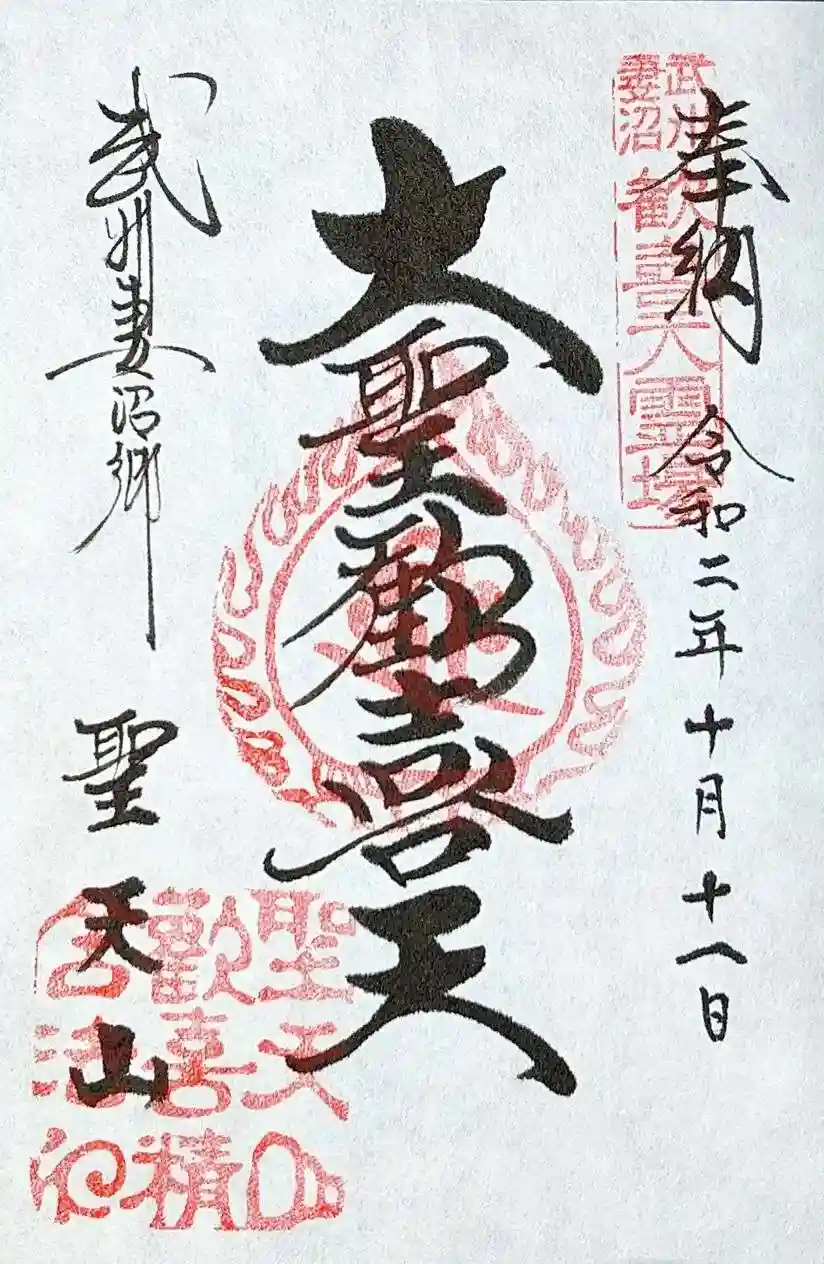 奉納
令和二年十月十八日
武州妻沼
歓喜天霊場
大聖歓喜天
武州妻沼郷
聖天山
聖天山
歡喜積